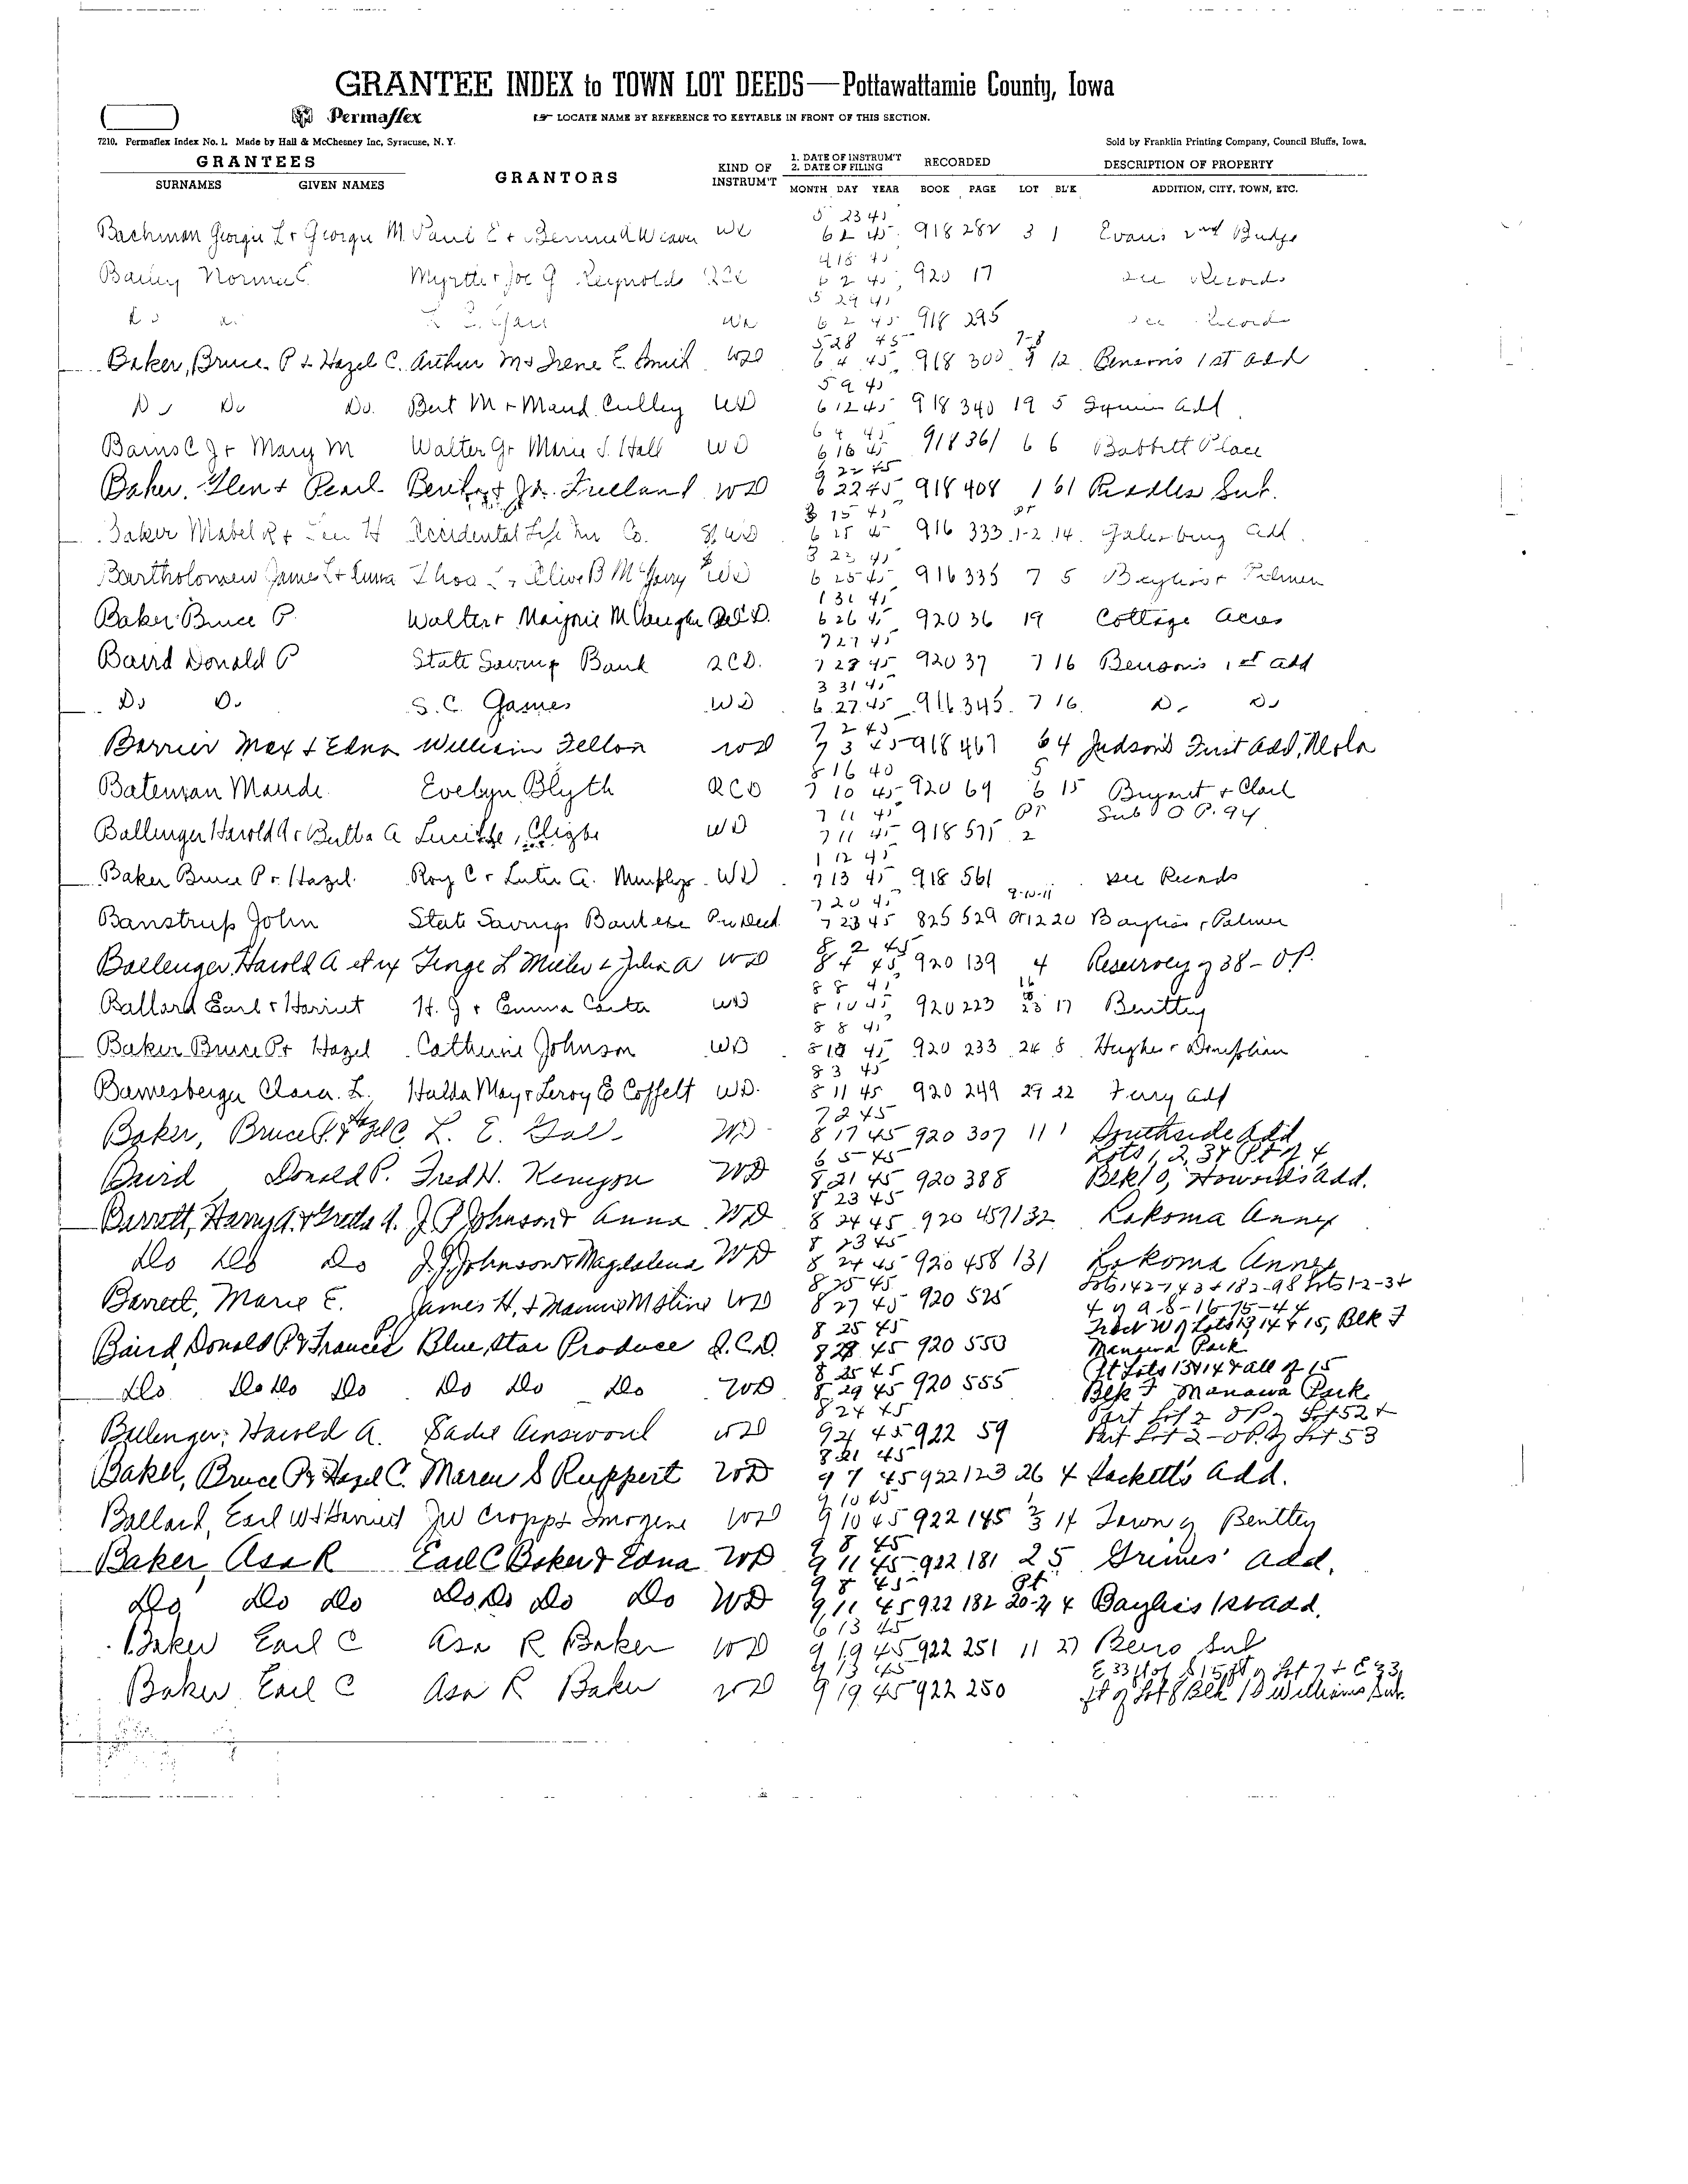 GRANTEE INDEX to TOWN LOT DEEDS—Pottawattamie County, Iowa
Permaflex ☞ LOCATE NAME BY REFERENCE TO KEYTABLE IN FRONT OF THIS SECTION.
7210. Permaflex Index No. 1. Made by Hall & McChesney Inc, Syracuse, N. Y. Sold by Franklin Printing Company, Council Bluffs, Iowa.
GRANTEES GRANTORS KIND OF INSTRUM'T 1. DATE OF INSTRUM'T 2. DATE OF FILING RECORDED DESCRIPTION OF PROPERTY
SURNAMES GIVEN NAMES MONTH DAY YEAR BOOK PAGE LOT BL'K ADDITION, CITY, TOWN, ETC.
5 23 45
Bachman Georgie L + George M Paul E + 918 282 3 1 Evans 2nd Bridge
4 18 45
Bailey Norma C. Myrtle + Joe G Reynolds QCD 6 2 45 920 17 see Records
5 29 45
Do Do WD 6 2 45 918 295 see Records
5 28 45 7-8
Baker, Bruce P + Hazel C. Arthur M + Irene E. Smith WD 6 4 45 918 300 9 12 Benson's 1st add
5 9 45
Do Do Do. Bert M + Maud Culley WD 6 12 45 918 340 19 5 Squires Add
6 4 45
Bains C J + Mary M Walter G + Marie S. Hall WD 6 16 45 918 361 6 6 Babbitt Place
6 22 45
Baker, Glen + Pearl Freeland WD 6 22 45 918 408 1 61 Riddles Sub.
3 15 45 pt
Baker Mabel R + Lee H Occidental Life Ins Co. 6 25 45 916 333 1-2 14 Galesburg Add.
3 22 45
Bartholomew James L + Anna Thos + Olive B McGary WD 6 25 45 916 335 7 5 Bayliss + Palmer
1 31 45
Baker Bruce P. Walter + Marjorie M Vaughn QCD. 6 26 45 920 36 19 Cottage Acres
7 27 45
Baird Donald P State Savings Bank QCD. 7 28 45 920 37 7 16 Benson's 1st add
3 31 45
Do Do S. C. Games WD 6 27 45 916 345 7 16 Do Do
7 2 45
Barrier Max + Edna William Fellon WD 7 3 45 918 467 6 4 Judson's First Add, Neola
8 16 40 5
Bateman Maude Evelyn Blyth QCD 7 10 45 920 69 6 15 Bryant + Clark
7 11 45 Pt Sub OP. 94
Ballinger Harold A + Bulba A WD 7 11 45 918 575 2
1 12 45
Baker Bruce P + Hazel Roy C + Luter A. Murphy WD 7 13 45 918 561 see Records
7 20 45 9-10-11
Banstrup John State Savings Bank 7 23 45 825 529 12 20 Bayliss + Palmer
8 2 45
Ballenger, Harold A et ux WD 8 4 45 920 139 4 Resurvey of 38 - OP.
8 8 45 16
Ballard Earl + Harriet H. J + Emma Carter WD 8 10 45 920 223 17 Bentley
8 8 45
Baker Bruce P + Hazel Catherine Johnson WD 8 10 45 920 233 24 8 Hughes + Doniphan
8 3 45
Barnesberger Clara L. Hulda May + Leroy E Coffelt WD. 8 11 45 920 249 29 22 Ferry Add
7 2 45
Baker, Bruce P. + Hazel C. L. E. WD 8 17 45 920 307 11 1 Southside Add
6 5 45 Lots 1, 2, 3 + Pt of 4,
Baird Donald P. Fred H. Kenyon WD 8 21 45 920 388 Blk 10, Howards Add.
8 23 45
Barrett, Harry A. + Greta A. J P Johnson + Anna WD 8 24 45 920 457 132 Lakoma Annex
8 23 45
Do Do Do J. J. Johnson + Magdalena WD 8 24 45 920 458 131 Lakoma Annex
8 25 45 Lots 142-143 + 182-98 Lots 1-2-3 +
Barrett, Marie E. James H. + Mannie M Stine WD 8 27 45 920 525 4 of 9-8-16-75-44
8 25 45 Lots 13 14 + 15, Blk 7
Baird, Donald P. + Frances P Blue Star Produce Q.C.D. 8 28 45 920 550 Manawa Park
8 25 45 Pt Lots 13 + 14 + all of 15
Do Do Do Do Do Do Do WD 8 29 45 920 555 Blk 7 Manawa Park
8 24 45 Part Lot 2 OP of Lot 52 +
Ballenger, Harold A. Sadie Ainsworth WD 9 4 45 922 59 Part Lot 2 - OP. of Lot 53
8 21 45
Baker, Bruce P + Hazel C. Maren S Ruppert WD 9 7 45 922 123 26 4 Sacketts Add.
9 10 45
Ballard, Earl W + Harriet JW Cropp + Imogene WD 9 10 45 922 145 14 Town of Bentley
9 8 45
Baker, Asa R Earl C Baker + Edna WD 9 11 45 922 181 2 5 Grimes' Add.
9 8 45 Pt
Do Do Do Do Do Do Do WD 9 11 45 922 182 20-21 4 Bayliss 1st Add.
6 13 45
Baker Earl C Asa R Baker WD 9 19 45 922 251 11 27 Beers Sub
9 13 45 E 33 ft of S 15 ft of Lot 7 + E 33
Baker Earl C Asa R Baker WD 9 19 45 922 250 ft of Lot 8 Blk 10 Williams Sub.